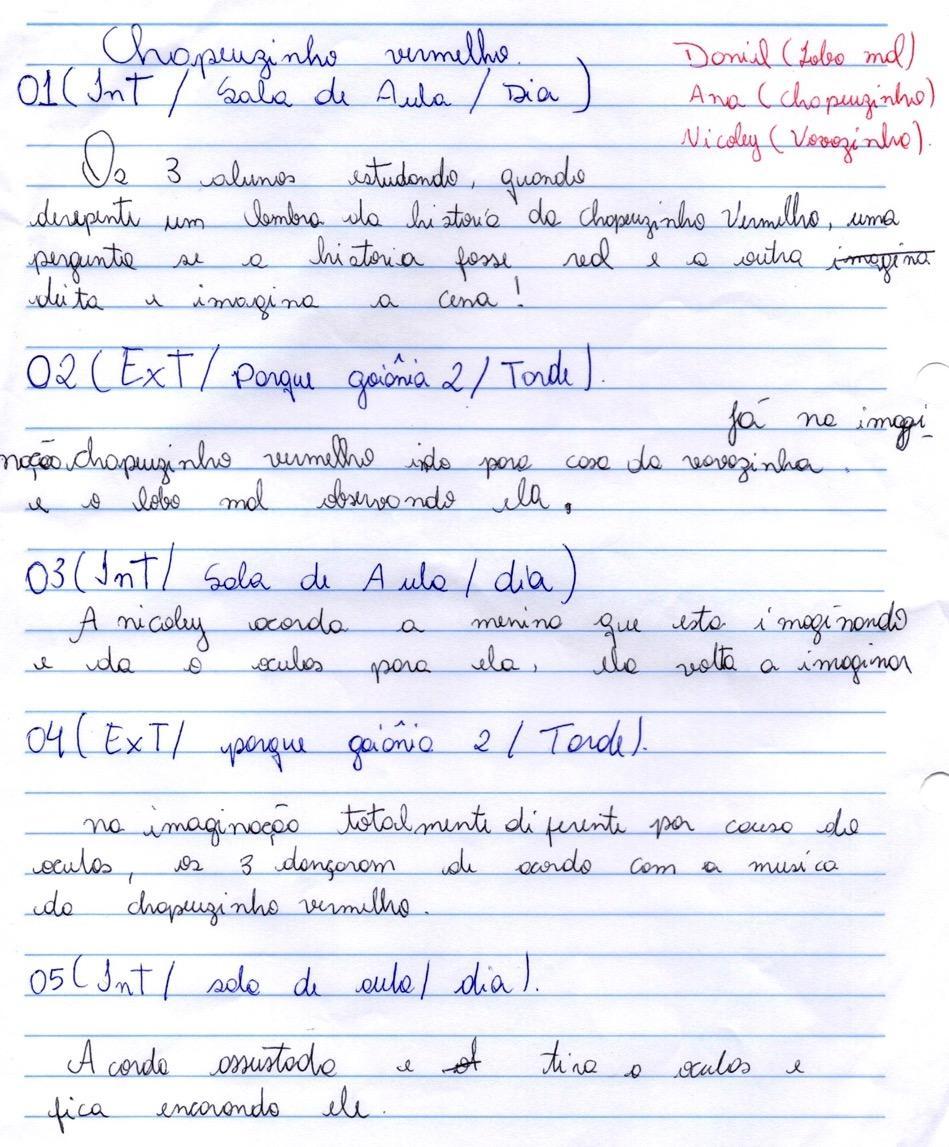 Chapeuzinho vermelho.
Daniel (Lobo mal)
Ana (Chapeuzinho)
Nicoley (Vovozinha).
01 (InT / Sala de Aula / Dia)
Os 3 alunos estudando, quando
derepente um lembra da historia da Chapeuzinho Vermelho, uma
pergunta se a historia fosse real e a outra imagina
deita e imagina a cena!
02 (ExT / Parque goiânia 2 / Tarde).
Já na imagi-
nação, chapeuzinho vermelho indo para casa da vovozinha.
e o lobo mal observando ela.
03 (InT / Sala de Aula / dia)
A nicoley acorda a menina que esta imaginando
e da o oculos para ela, ela volta a imaginar
04 (ExT / parque goiânia 2 / Tarde).
na imaginação totalmente diferente por causa do
oculos, os 3 dançaram de acordo com a musica
da chapeuzinho vermelho.
05 (InT / sala de aula / dia).
Acorda assustada e tira o oculos e
fica encarando ele.